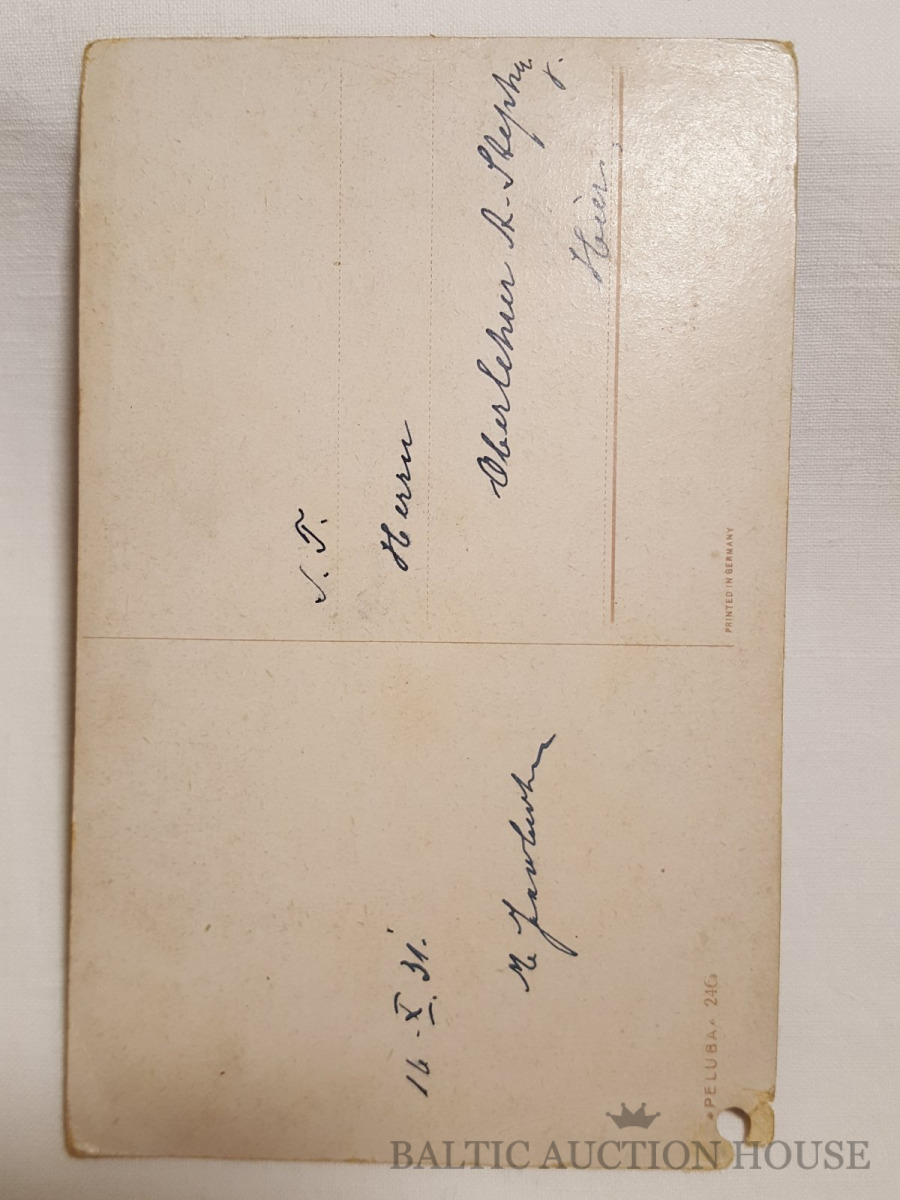 16 - X. 31.
S. T.
Herrn
Oberlehrer A. Stephy
Hier.
PRINTED IN GERMANY
PELUBA 246
BALTIC AUCTION HOUSE